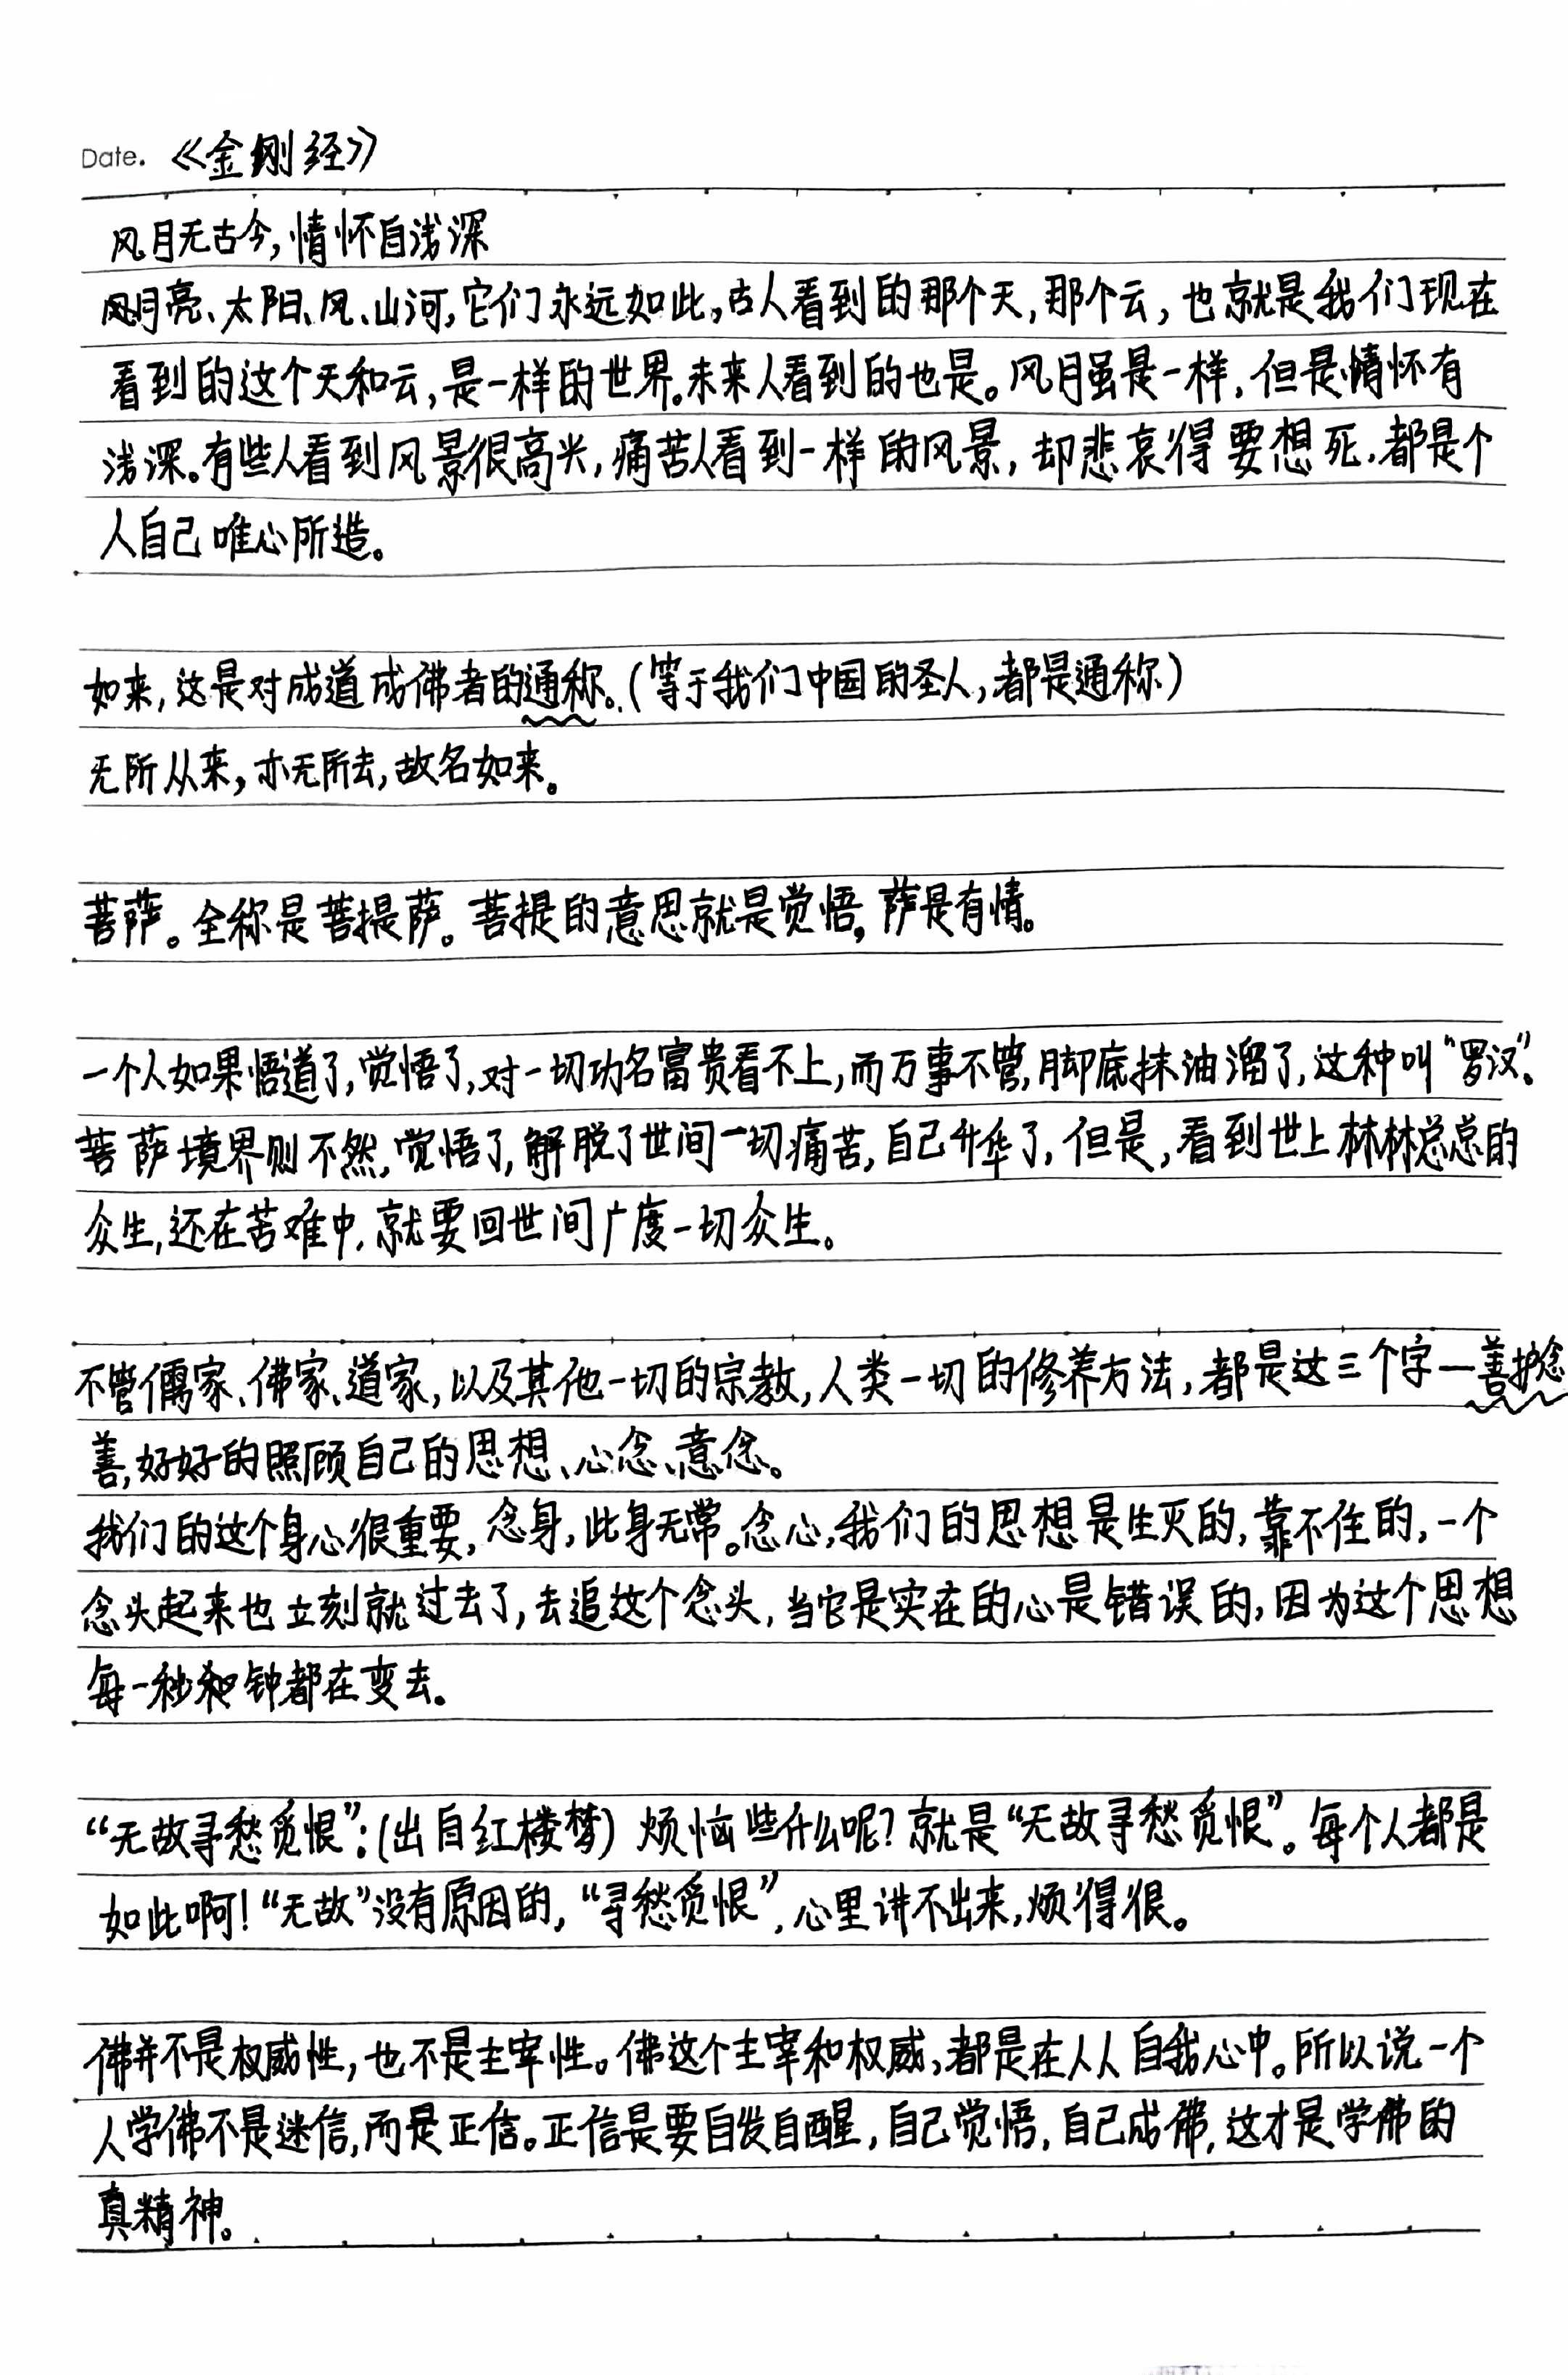 Date. 《金刚经》
风月无古今,情怀自浅深
月亮、太阳、风、山河,它们永远如此,古人看到的那个天,那个云,也就是我们现在
看到的这个天和云,是一样的世界。未来人看到的也是。风月虽是一样,但是情怀有
浅深。有些人看到风景很高兴,痛苦人看到一样的风景,却悲哀得要想死.都是个
人自己唯心所造。
如来,这是对成道成佛者的通称。(等于我们中国的圣人,都是通称)
无所从来,亦无所去,故名如来。
菩萨。全称是菩提萨。菩提的意思就是觉悟,萨是有情。
一个人如果悟道了,觉悟了,对一切功名富贵看不上,而万事不管,脚底抹油溜了,这种叫“罗汉”。
菩萨境界则不然,觉悟了,解脱了世间一切痛苦,自己升华了,但是,看到世上林林总总的
众生,还在苦难中,就要回世间广度一切众生。
不管儒家、佛家、道家,以及其他一切的宗教,人类一切的修养方法,都是这三个字—善护念
善,好好的照顾自己的思想、心念、意念。
我们的这个身心很重要,念身,此身无常。念心,我们的思想是生灭的,靠不住的,一个
念头起来也立刻就过去了,去追这个念头,当它是实在的心是错误的,因为这个思想
每一秒和钟都在变去。
“无故寻愁觅恨”:(出自红楼梦)烦恼些什么呢?就是“无故寻愁觅恨”。每个人都是
如此啊!“无故”没有原因的,“寻愁觅恨”,心里讲不出来,烦得很。
佛并不是权威性,也不是主宰性。佛这个主宰和权威,都是在人人自我心中。所以说一个
人学佛不是迷信,而是正信。正信是要自发自醒,自己觉悟,自己成佛,这才是学佛的
真精神。